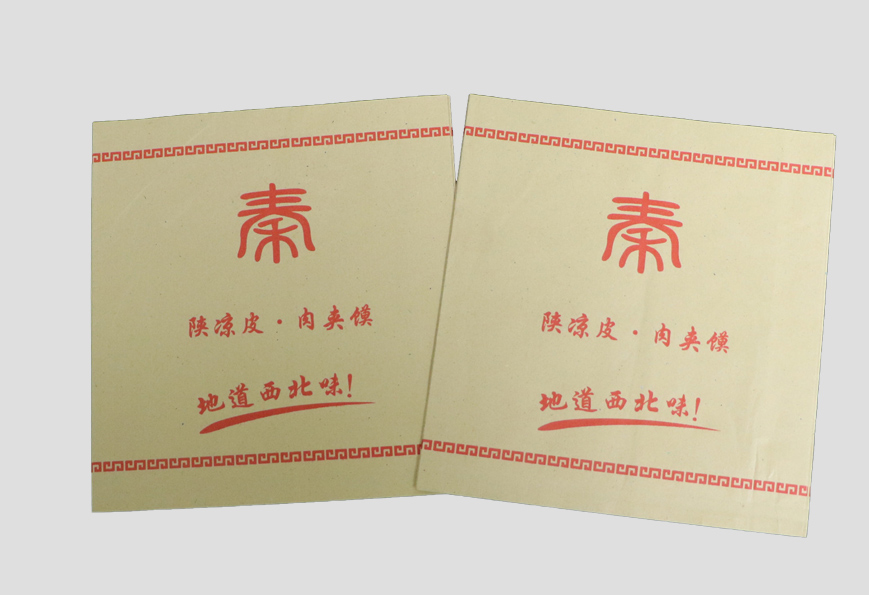 秦
陕凉皮·肉夹馍
地道西北味!
秦
陕凉皮·肉夹馍
地道西北味!